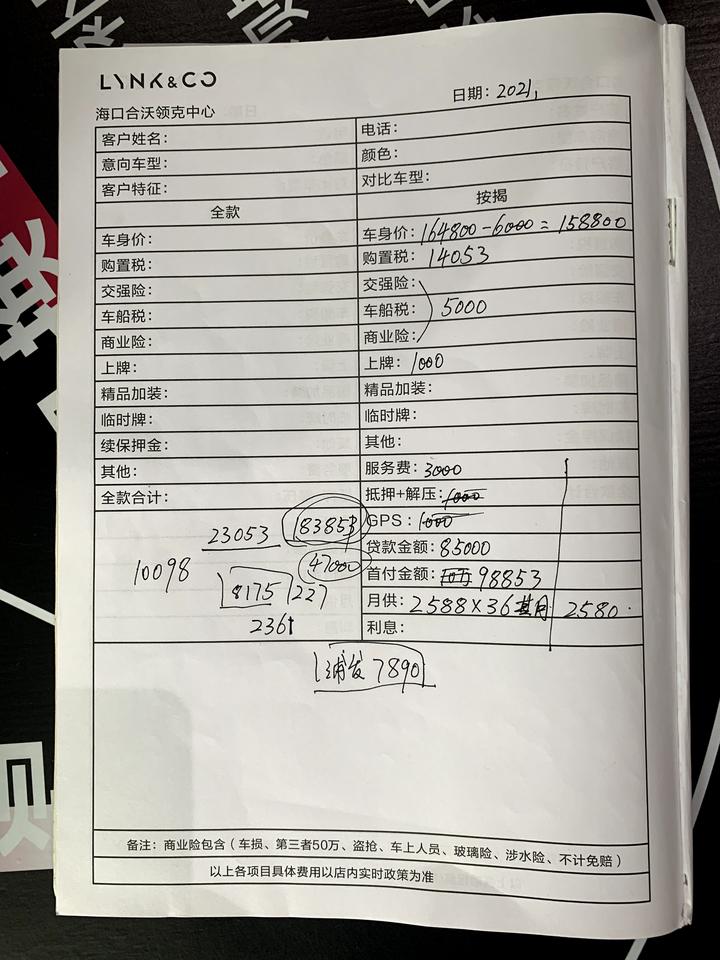 LYNK&CO
海口合沃领克中心
日期：2021,
客户姓名：
电话：
意向车型：
颜色：
客户特征：
对比车型：
全款
按揭
车身价：
车身价：164800-6000=158800
购置税：
购置税：14053
交强险：
交强险：
车船税：
车船税：5000
商业险：
商业险：
上牌：
上牌：1000
精品加装：
精品加装：
临时牌：
临时牌：
续保押金：
其他：
其他：
服务费：3000
全款合计：
抵押+解压：1000
23053
183853
GPS：1000
10098
47000
贷款金额：85000
8175
227
首付金额：98853
2361
月供：2588×36 2580
利息：
浦发7890
备注：商业险包含（车损、第三者50万、盗抢、车上人员、玻璃险、涉水险、不计免赔）
以上各项目具体费用以店内实时政策为准